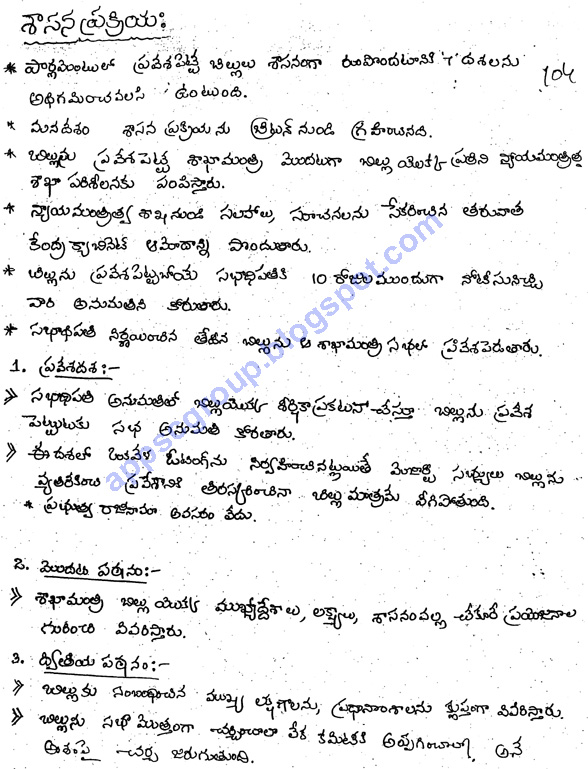 శాసన ప్రక్రియ:
* పార్లమెంటులో ప్రవేశపెట్టే బిల్లులు శాసనంగా రూపొందటానికి 7 దశలను
104
అధిగమించవలసి ఉంటుంది.
* మనదేశం శాసన ప్రక్రియను బ్రిటన్ నుండి గ్రహించినది.
* బిల్లును ప్రవేశపెట్టే శాఖామంత్రి మొదటగా బిల్లు యొక్క ప్రతిని న్యాయమంత్రిత్వ
శాఖా పరిశీలనకు పంపిస్తారు.
* న్యాయమంత్రిత్వ శాఖ నుండి సలహాలు, సూచనలను సేకరించిన తరువాత
కేంద్ర క్యాబినెట్ ఆమోదాన్ని పొందుతారు.
* బిల్లును ప్రవేశపెట్టబోయే సభాధిపతికి 10 రోజుల ముందుగా నోటీసునిచ్చి
వారి అనుమతిని కోరుతారు.
* సభాధిపతి నిర్ణయించిన తేదీన బిల్లును ఆ శాఖామంత్రి సభలో ప్రవేశపెడతారు.
1. ప్రవేశదశ:-
» సభాధిపతి అనుమతితో బిల్లుయొక్క శీర్షికా ప్రకటన చేస్తూ బిల్లును ప్రవేశ
పెట్టుటకు సభ అనుమతి కోరతారు.
» ఈ దశలో ఒకవేళ ఓటింగ్‌ను నిర్వహించినట్లయితే మెజార్టీ సభ్యులు బిల్లును
వ్యతిరేకించి ప్రవేశానికి తిరస్కరించినా బిల్లు మాత్రమే వీగిపోతుంది.
* ప్రభుత్వ రాజీనామా అవసరం లేదు.
2. మొదటి పఠనం:-
» శాఖామంత్రి బిల్లు యొక్క ముఖ్యోద్దేశాలు, లక్ష్యాలు, శాసనం వల్ల చేకూరే ప్రయోజనాల
గురించి వివరిస్తారు.
3. ద్వితీయ పఠనం:-
» బిల్లుకు సంబంధించిన ముఖ్య లక్షణాలను, ప్రధానాంశాలను క్లుప్తంగా వివరిస్తారు.
» బిల్లును సభ మొత్తంగా చర్చించాలా లేక కమిటీకి అప్పగించాలా అనే
అంశంపై చర్చ జరుగుతుంది.
appscgroup.blogspot.com